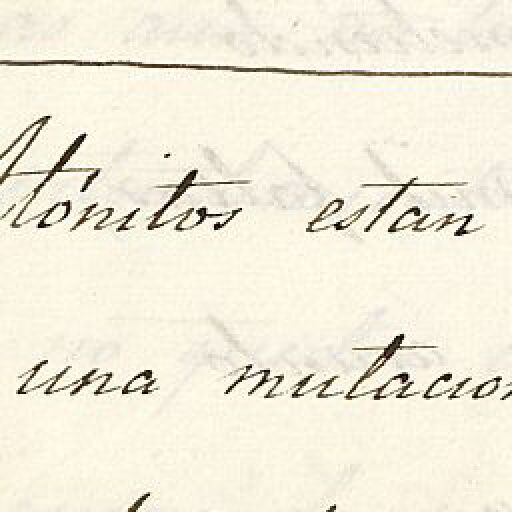 Atónitos estan
una mutacion